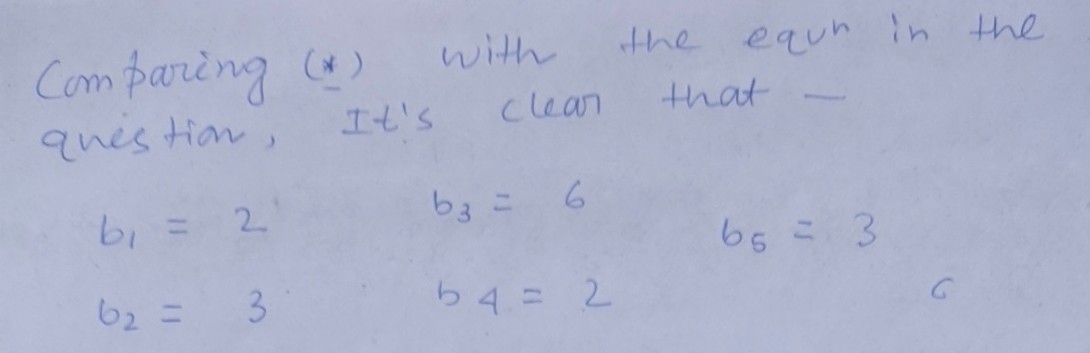 Comparing (*) with the equn in the
question, It's clear that —
b1 = 2 b3 = 6 b5 = 3
b2 = 3 b4 = 2